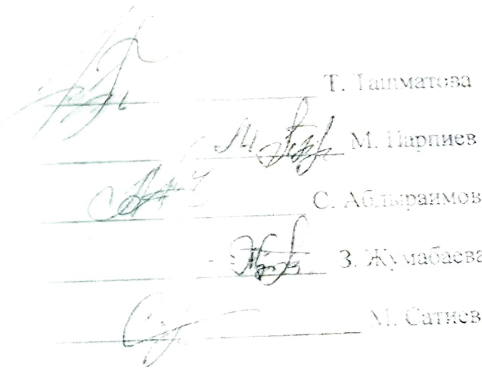 Т. Ташматова
М. Парпиев
С. Абдыраимов
З. Жумабаева
М. Сатиев